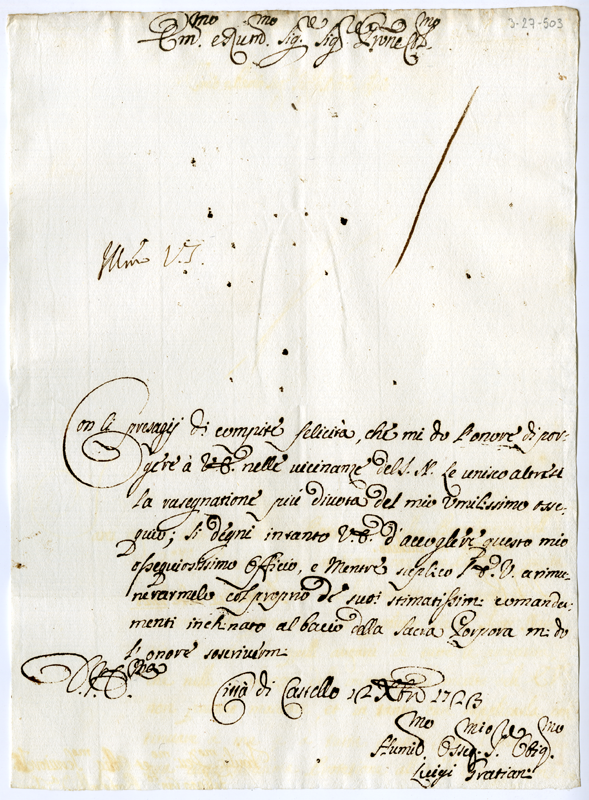 3-27-503
Em.mo e Rvm.mo Sig.re Sig.re Prone Col.mo
Illmo V.I.
Con li presagij di compite felicità, che mi do l'onore di por-
gere à V.E. nelle vicinanze del S. N. Le unisco altresi
la rasegnatione più divota del mio Vmilissimo osse-
quio; si degni intanto V.E. d'accoglere questo mio
ossequiosissimo Officio, e Mentre suplico l'E.V. a rimu-
nerarmelo col proprio de suoi stimatissim. comanda-
menti inchinato al bacio della Sacra Porpora m. do
l'onore soscrivermi
D.V.E.ma
Città di Castello 12 Xbre 1723
Humil.mo Osseq.mo S.re Oblig.mo
Luigi Gratian